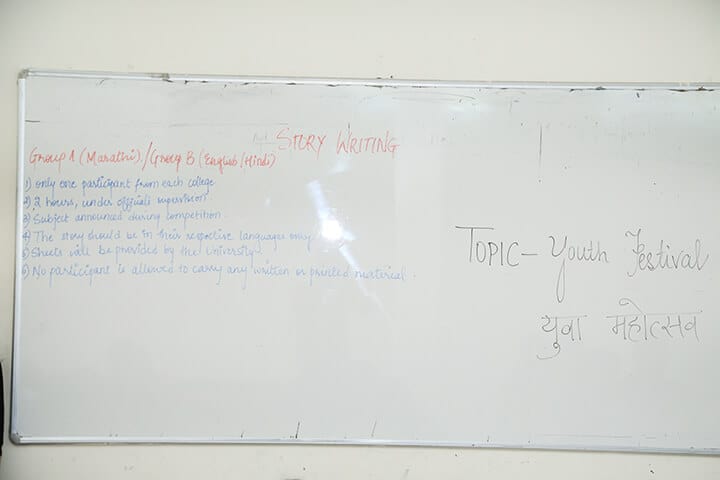 STORY WRITING
Group A (Marathi) / Group B (English/Hindi)
1) only one participant from each college
2) 2 hours, under officials supervision
3) Subject announced during competition.
4) The story should be in their respective languages only
5) Sheets will be provided by the University.
6) No participant is allowed to carry any written or printed material.
TOPIC - Youth Festival
युवा महोत्सव